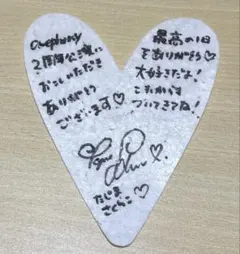 2周年公演に
おこしいただき
ありがとう
ございます♡
最高の1日
をありがとう♡
大好きだよ!
これからも
ついてきてね!
たじま
さくらこ